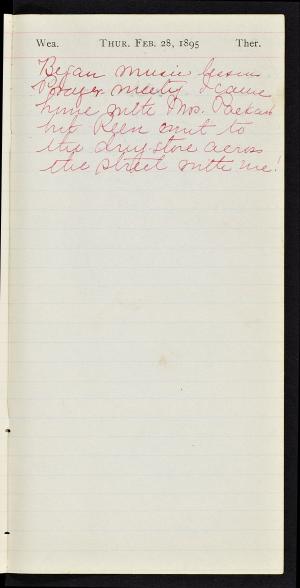 Wea. THUR. FEB. 28, 1895 Ther.
Began music lessons.
Prayer meeting. I came
home with Mrs.
but went to
the drug store across
the street with me!